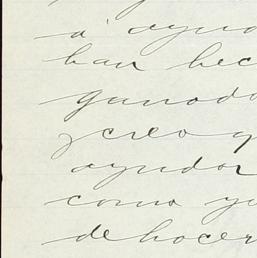 a ayud
han hec
ganado
y creo q
ayudar
como yo
de hacer